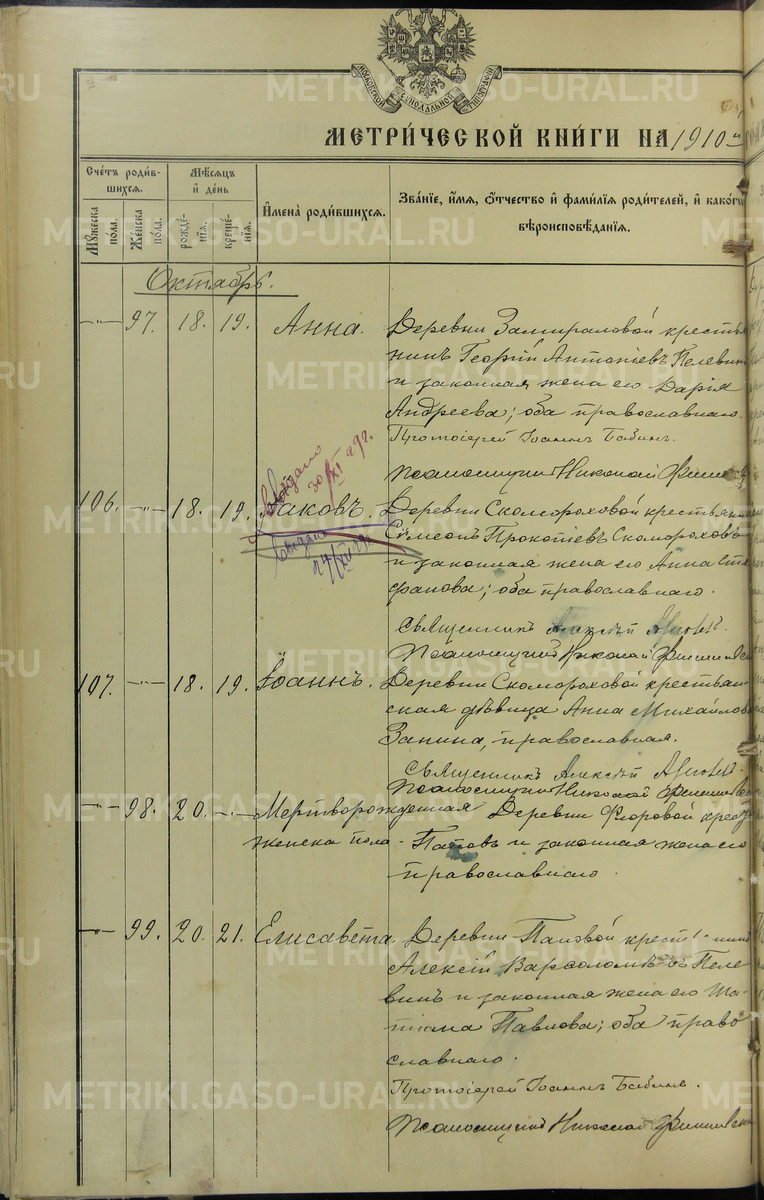 МОСКОВСКОЙ СѴНОДАЛЬНОЙ ТИПОГРАФІИ
МЕТРИ́ЧЕСКОЙ КНИ́ГИ НА 1910й
Сче́тъ роди́в-
шихся.
Му́жеска
по́ла.
Же́нска
по́ла.
Мѣ́сяцъ
и҆ де́нь
рожде́-
нїя.
креще́-
нїя.
И҆мена̀ роди́вшихся.
Зва́нїе, и҆́мя, ѻ҆́тчество и҆ фами́лїя роди́телей, и҆ како́гѡ
вѣроисповѣ́данїя.
Октябрь.
97. 18. 19. Анна.
Деревни Замираловой крестья
нинъ Георгій Антоніевъ Пелевинъ
и законная жена его Дарія
Андреева; оба православнаго.
Протоіерей Іоаннъ Бабинъ.
Псаломщикъ Николай
Выдано
30/XI 29г.
106. 18. 19. Іаковъ.
Выдано
Деревни Скомороховой крестьян
Симеонъ Прокопіевъ Скомороховъ
и законная жена его Анна Сте
фанова; оба православнаго.
Священникъ Алексѣй
Псаломщикъ Николай
107. 18. 19. Іоаннъ.
Деревни Скомороховой крестьян-
ская дѣвица Анна Михайлов
Занина, православная.
Священникъ Алексѣй
Псаломщикъ Николай
98. 20. Мертворожденная
женска пола.
Деревни Фроровой крест
Пановъ и законная жена его
православнаго.
99. 20. 21. Елисавета.
Деревни Пановой крест нинъ
Алексій Варѳоломѣевъ Пеле
винъ и законная жена его Та-
тіана Павлова; оба право
славнаго.
Протоіерей Іоаннъ Бабинъ.
Псаломщикъ Николай
METRIKI.GASO-URAL.RU